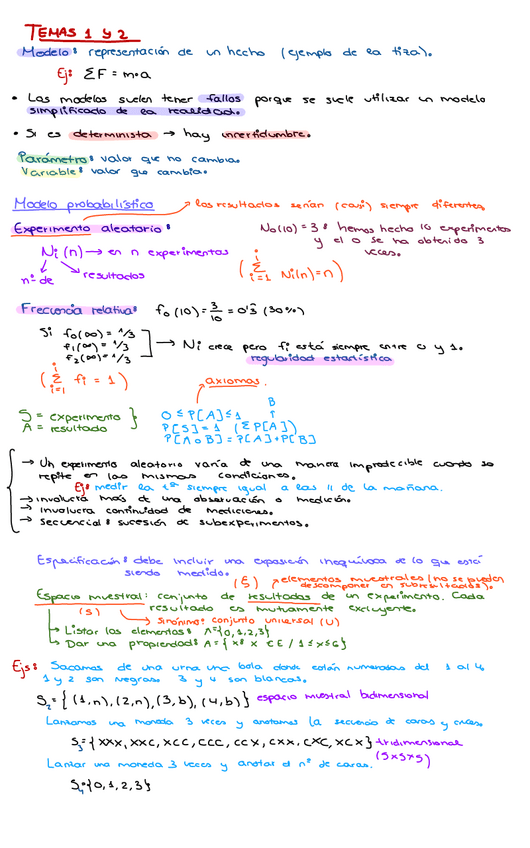 TEMAS 1 y 2
Modelo: representación de un hecho (ejemplo de la tiza).
Ej: ΣF = m·a
• Los modelos suelen tener fallos porque se suele utilizar un modelo
simplificado de la realidad.
• Si es determinista → hay incertidumbre.
Parámetro: valor que no cambia.
Variable: valor que cambia.
Modelo probabilístico
→ los resultados serían (casi) siempre diferentes
Experimento aleatorio:
N₀(10) = 3: hemos hecho 10 experimentos
y el 0 se ha obtenido 3
veces.
Ni(n) → en n experimentos
nº de
resultados
(Σ i=1 Ni(n)=n)
Frecuencia relativa: f₀(10) = 3/10 = 0'3 (30%)
Si f₀(∞) = 1/3
f₁(∞) = 1/3
f₂(∞) = 1/3
→ Ni crece pero fi está siempre entre 0 y 1.
regularidad estadística
(Σ i=1 fi = 1)
axiomas.
S = experimento
A = resultado
B
0 ≤ P[A] ≤ 1
P[S] = 1 (ΣP[A])
P[A o B] = P[A]+P[B]
→ Un experimento aleatorio varía de una manera impredecible cuando se
repite en las mismas condiciones.
Ej: medir la tª siempre igual a las 11 de la mañana.
→ involucra más de una observación o medición.
→ Involucra continuidad de mediciones.
→ Secuencial: sucesión de subexperimentos.
Especificación: debe incluir una exposición inequívoca de lo que está
siendo medido.
(ξ) → elementos muestrales (no se pueden
descomponer en subresultados).
Espacio muestral: conjunto de resultados de un experimento. Cada
resultado es mutuamente excluyente.
(S)
→ Sinónimo: conjunto universal (U)
→ Listar los elementos: A={0,1,2,3}
→ Dar una propiedad: A={x: x ∈ E / 1≤x≤6}
Ejs: Sacamos de una urna una bola donde están numeradas del 1 al 4,
1 y 2 son negras 3 y 4 son blancas.
S₂={(1,n),(2,n),(3,b),(4,b)} espacio muestral bidimensional
Lanzamos una moneda 3 veces y anotamos la secuencia de caras y cruces.
S₃={XXX, XXC, XCC, CCC, CCX, CXX, CXC, XCX} tridimensional
(SxSxS)
Lanzar una moneda 3 veces y anotar el nº de caras.
S₄={0,1,2,3}